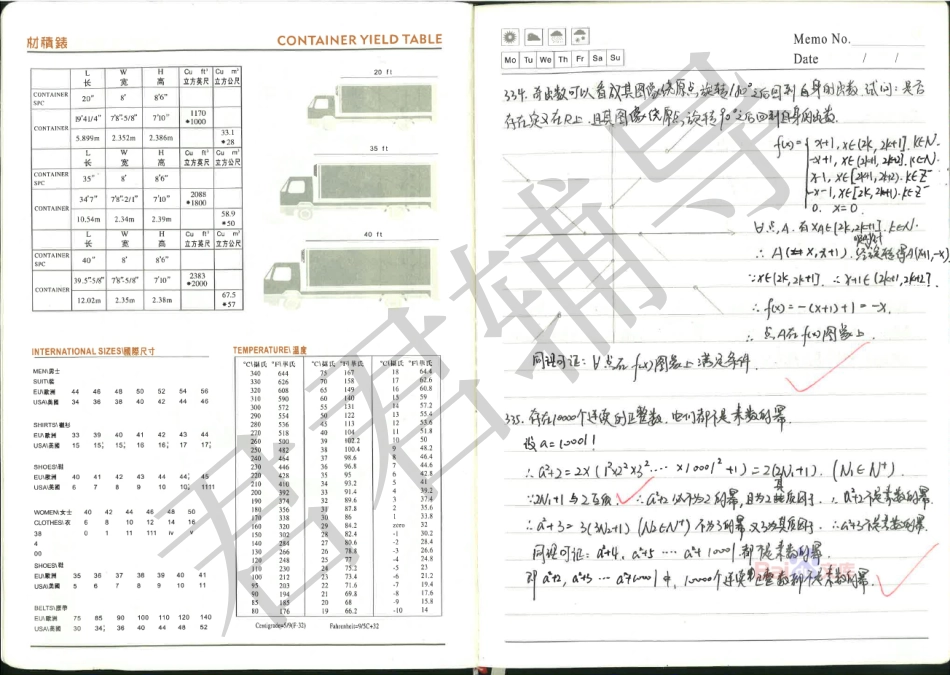 材積錶
CONTAINER YIELD TABLE
L 长 W 宽 H 高 Cu ft³ 立方英尺 Cu m³ 立方公尺
CONTAINER SPC 20" 8' 8'6"
CONTAINER 19'41/4" 7'8-5/8" 7'10" 1170 *1000
5.899m 2.352m 2.386m 33.1 *28
L 长 W 宽 H 高 Cu ft³ 立方英尺 Cu m³ 立方公尺
CONTAINER SPC 35" 8' 8'6"
CONTAINER 34'7" 7'8-2/1" 7'10" 2088 *1800
10.54m 2.34m 2.39m 58.9 *50
L 长 W 宽 H 高 Cu ft³ 立方英尺 Cu m³ 立方公尺
CONTAINER SPC 40" 8' 8'6"
CONTAINER 39.5"-5/8" 7'8"-5/8" 7'10" 2383 *2000
12.02m 2.35m 2.38m 67.5 *57
20 ft
35 ft
40 ft
INTERNATIONAL SIZES\國際尺寸
MEN\男士
EU\歐洲 44 46 48 50 52 54 56
USA\美國 34 36 38 40 42 44 46
SHIRTS\襯衫
EU\歐洲 33 39 40 41 42 43 44
USA\美國 15 15; 15; 16 16; 17 17;
SHOES\鞋
EU\歐洲 40 41 42 43 44 44; 45
USA\美國 6 7 8 9 10 10; 1111
WOMEN\女士 40 42 44 46 48 50
CLOTHES\衣 6 8 10 12 14 16
38 0 1 11 111 iv v
4
00
SHOES\鞋
EU\歐洲 35 36 37 38 39 40 41
USA\美國 5 6 7 8 9 10 11
BELTS\腰帶
EU\歐洲 75 85 90 100 110 120 140
USA\美國 30 34; 36 40 44 48 52
TEMPERATURE\溫度
°C\攝氏 °F\華氏 °C\攝氏 °F\華氏 °C\攝氏 °F\華氏
340 644 75 167 18 64.4
330 626 70 158 17 62.6
320 608 65 149 16 60.8
310 590 60 140 15 59
300 572 55 131 14 57.2
290 554 50 122 13 55.4
280 536 45 113 12 53.6
270 518 40 104 11 51.8
260 500 39 102.2 10 50
250 482 38 100.4 9 48.2
240 464 37 98.6 8 46.4
230 446 36 96.8 7 44.6
220 428 35 95 6 42.8
210 410 34 93.2 5 41
200 392 33 91.4 4 39.2
190 374 32 89.6 3 37.4
180 356 31 87.8 2 35.6
170 338 30 86 1 33.8
160 320 29 84.2 zero 32
150 302 28 82.4 -1 30.2
140 284 27 80.6 -2 28.4
130 266 26 78.8 -3 26.6
120 248 25 77 -4 24.8
110 230 24 75.2 -5 23
100 212 23 73.4 -6 21.2
95 203 22 71.6 -7 19.4
90 194 21 69.8 -8 17.6
85 185 20 68 -9 15.8
80 176 19 66.2 -10 14
Centigrade=5/9(F-32) Fahrenheit=9/5C+32
Memo No.
Mo Tu We Th Fr Sa Su
Date / /
334. 奇函数可以看成其图像绕原点旋转180°之后回到自身的函数. 试问: 是否
存在定义在R上, 且其图像绕原点旋转90°之后回到自身的函数.
f(x) = { x+1, x∈(2k, 2k+1]. k∈N.
-x+1, x∈(2k+1, 2k+2]. k∈N.
x-1, x∈[2k+1, 2k+2). k∈Z⁻
-x-1, x∈[2k, 2k+1). k∈Z⁻
0. x=0.
∀点A. 若xA∈(2k,2k+1]. k∈N.
∴ A(x, x+1). 旋转得A(x+1, -x)
∵ x∈(2k,2k+1]. ∴ x+1∈(2k+1,2k+2].
∴ f(x) = -(x+1)+1 = -x.
∴ 点A在f(x)图象上
同理可证: ∀点在f(x)图象上满足条件.
335. 存在10000个连续的正整数, 它们都不是素数的幂.
设a=10001!
∴ a²+2=2×(1²×2²×3²···×10001²+1)=2(2N₁+1). (N₁∈N⁺)
∵ 2N₁+1与2互质, ∴ a²+2必不为2的幂, 且为2其质因子. ∴ a²+2不是素数的幂.
∴ a²+3=3(3N₂+1) (N₂∈N⁺) 不为3的幂又3为其质因子. ∴ a²+3不是素数的幂.
同理可证: a²+4, a²+5 ··· a²+10001都不是素数的幂.
即a²+2, a²+3 ··· a²+10001中, 10000个连续正整数都不是素数的幂.
君君辅导